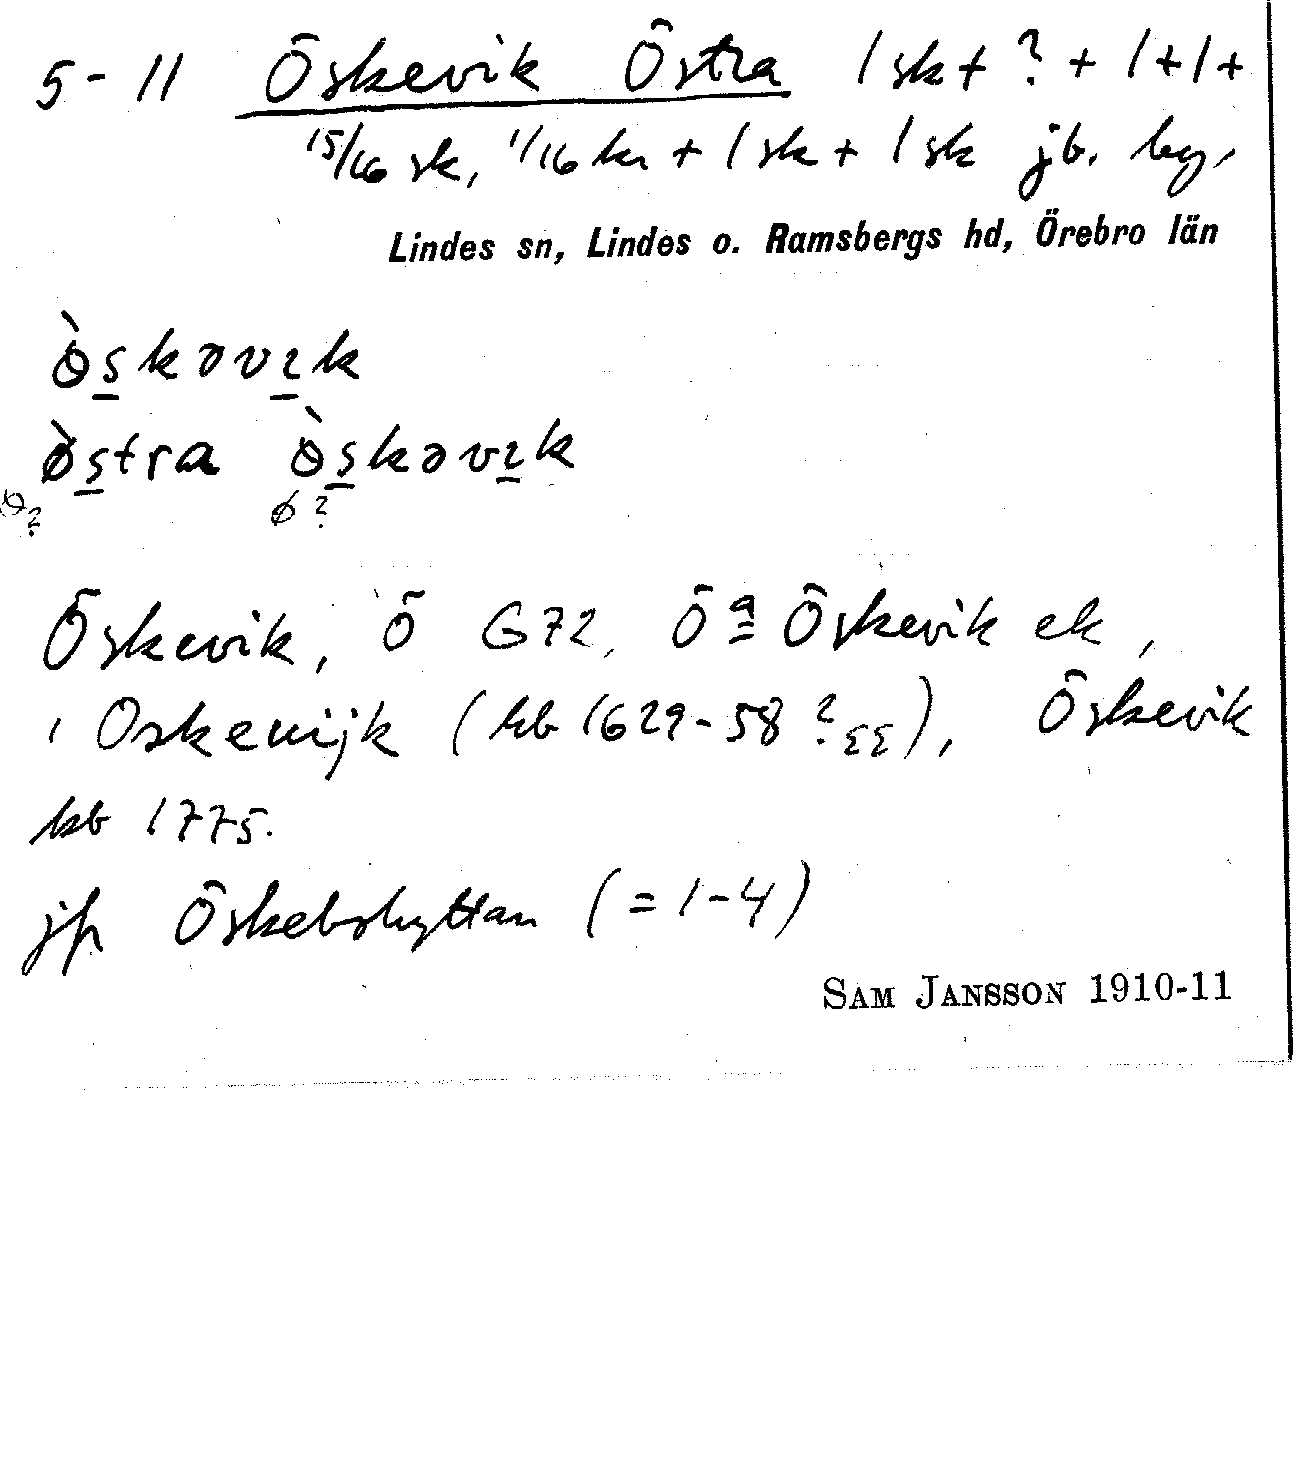 5-11 Öskevik Östra 1 sk + ? + 1+1+
15/16 sk, 1/16 kr + 1 sk + 1 sk jb. by,
Lindes sn, Lindes o. Ramsbergs hd, Örebro län
ɵ̀skəvɪk
ø̀stra ɵ̀skəvɪk
ɵ? ø?
Öskevik, Ö G72, Öa Öskevik ek,
i Oskewijk (kb 1629-58 ?), Öskevik
kb 1775.
jfr Öskebohyttan (= 1-4)
SAM JANSSON 1910-11